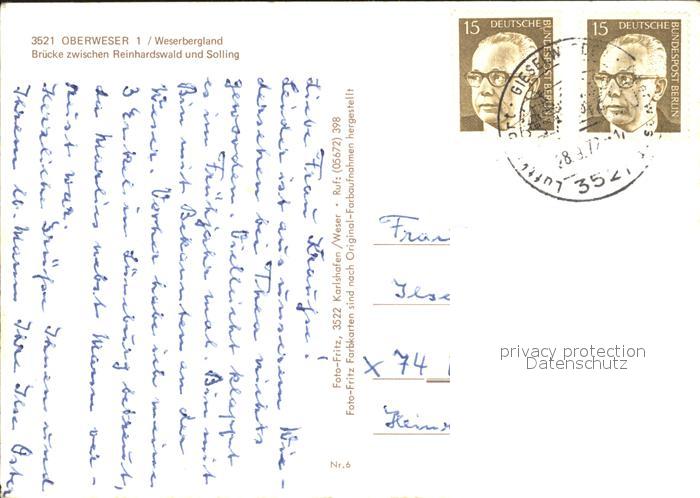 3521 OBERWESER 1 / Weserbergland
Brücke zwischen Reinhardswald und Solling
Liebe Frau Krause!
Leider ist aus unserem Wie-
dersehen bei Thea nichts
geworden. Vielleicht klappt
es im Frühjahr mal. Bin mit
Bin mit Bekannten an der
Weser. Vorher habe ich meine
3 Enkel in Lüneburg betreut,
da Marlies nebst Mann ver-
reist war.
Herzliche Grüße Ihnen und
Ihrem lb. Mann Ihre Ilse
Foto-Fritz, 3522 Karlshafen/Weser · Ruf: (05672) 398
Foto-Fritz Farbkarten sind nach Original-Farbaufnahmen hergestellt
Nr. 6
15 DEUTSCHE BUNDESPOST BERLIN
15 DEUTSCHE BUNDESPOST BERLIN
3521
Frau
Ilse
x 74
privacy protection
Datenschutz